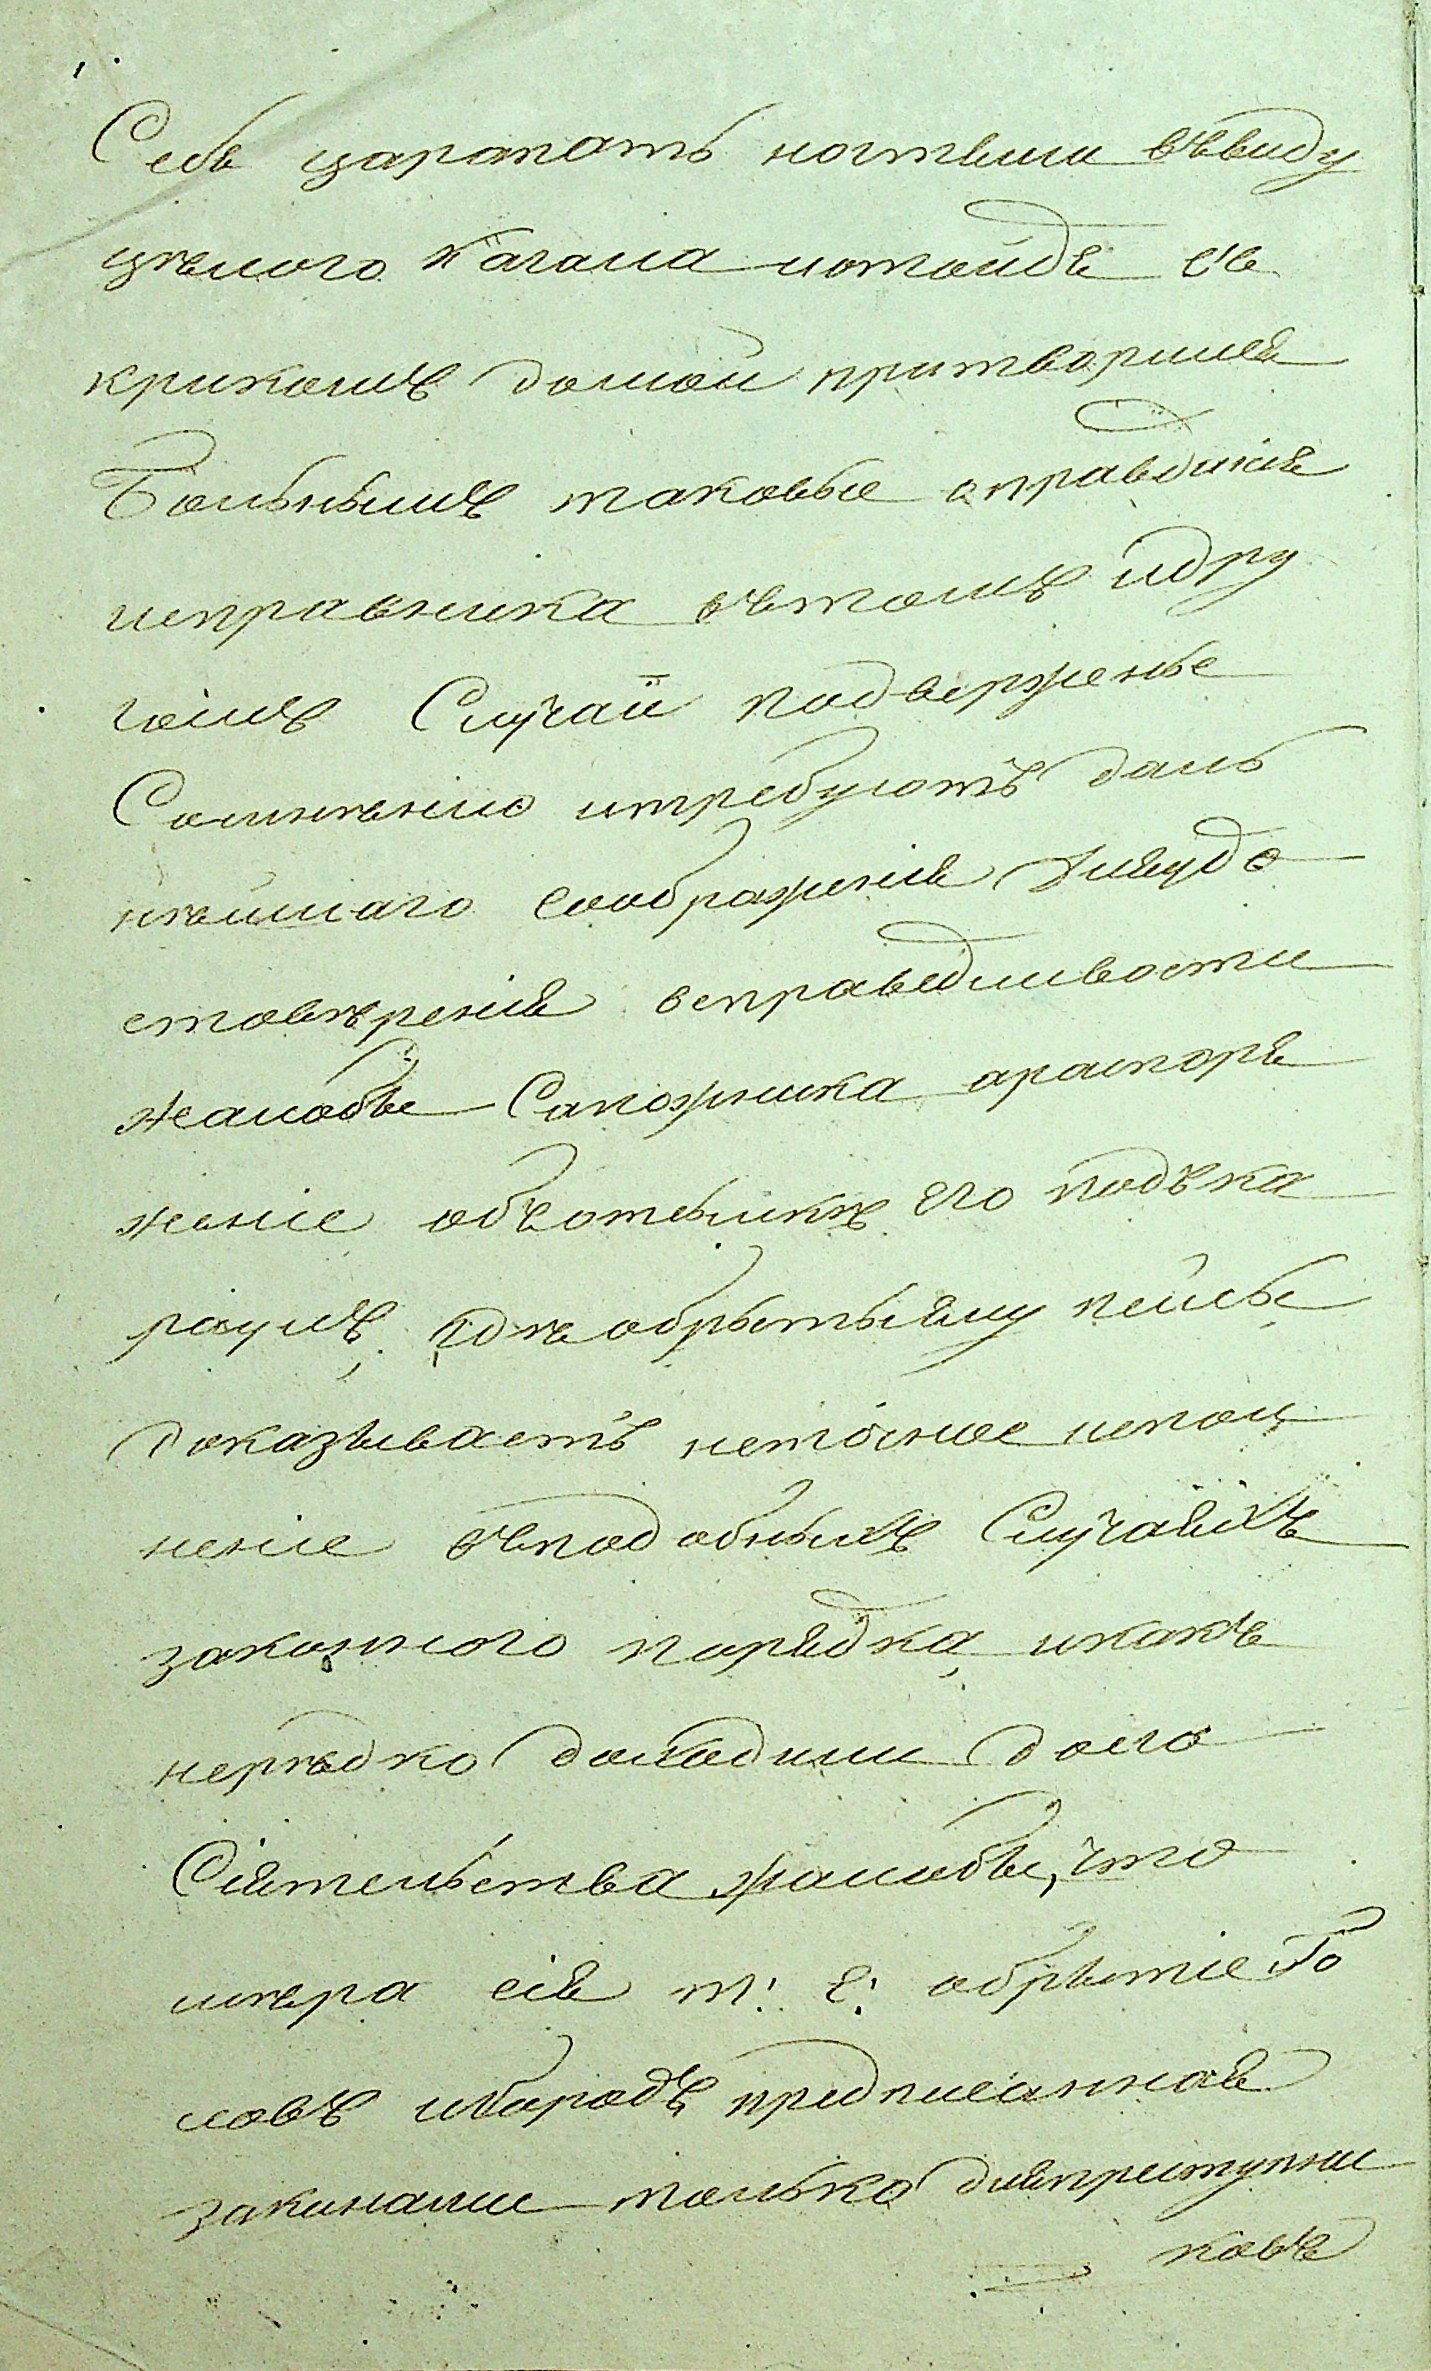 Себя царапать ногтьми въвиду
цѣлого Кагала ипошодъ съ
крикомъ домой притворился
больнымъ таковые оправданія
исправника вътомъ идру
гомъ Случаи подвержены
Сомнѣнію итребуютъ даль
нѣйшаго соображенія дляудо
стовѣренія всправедливости
жалобы Сапожника араспоря
женіе объотсылкѣ его подъка
раулъ, гдѣ обрытыему пейсы
доказываетъ неточное испол
неніе въподобныхъ Случаяхъ
законного порядка, икакъ
нерѣдко доходили доего
Сіятельства жалобы, что
мѣра сія т: е: обрытіе Го
ловъ ибородъ предписанная
законами только дляпреступни
ковъ